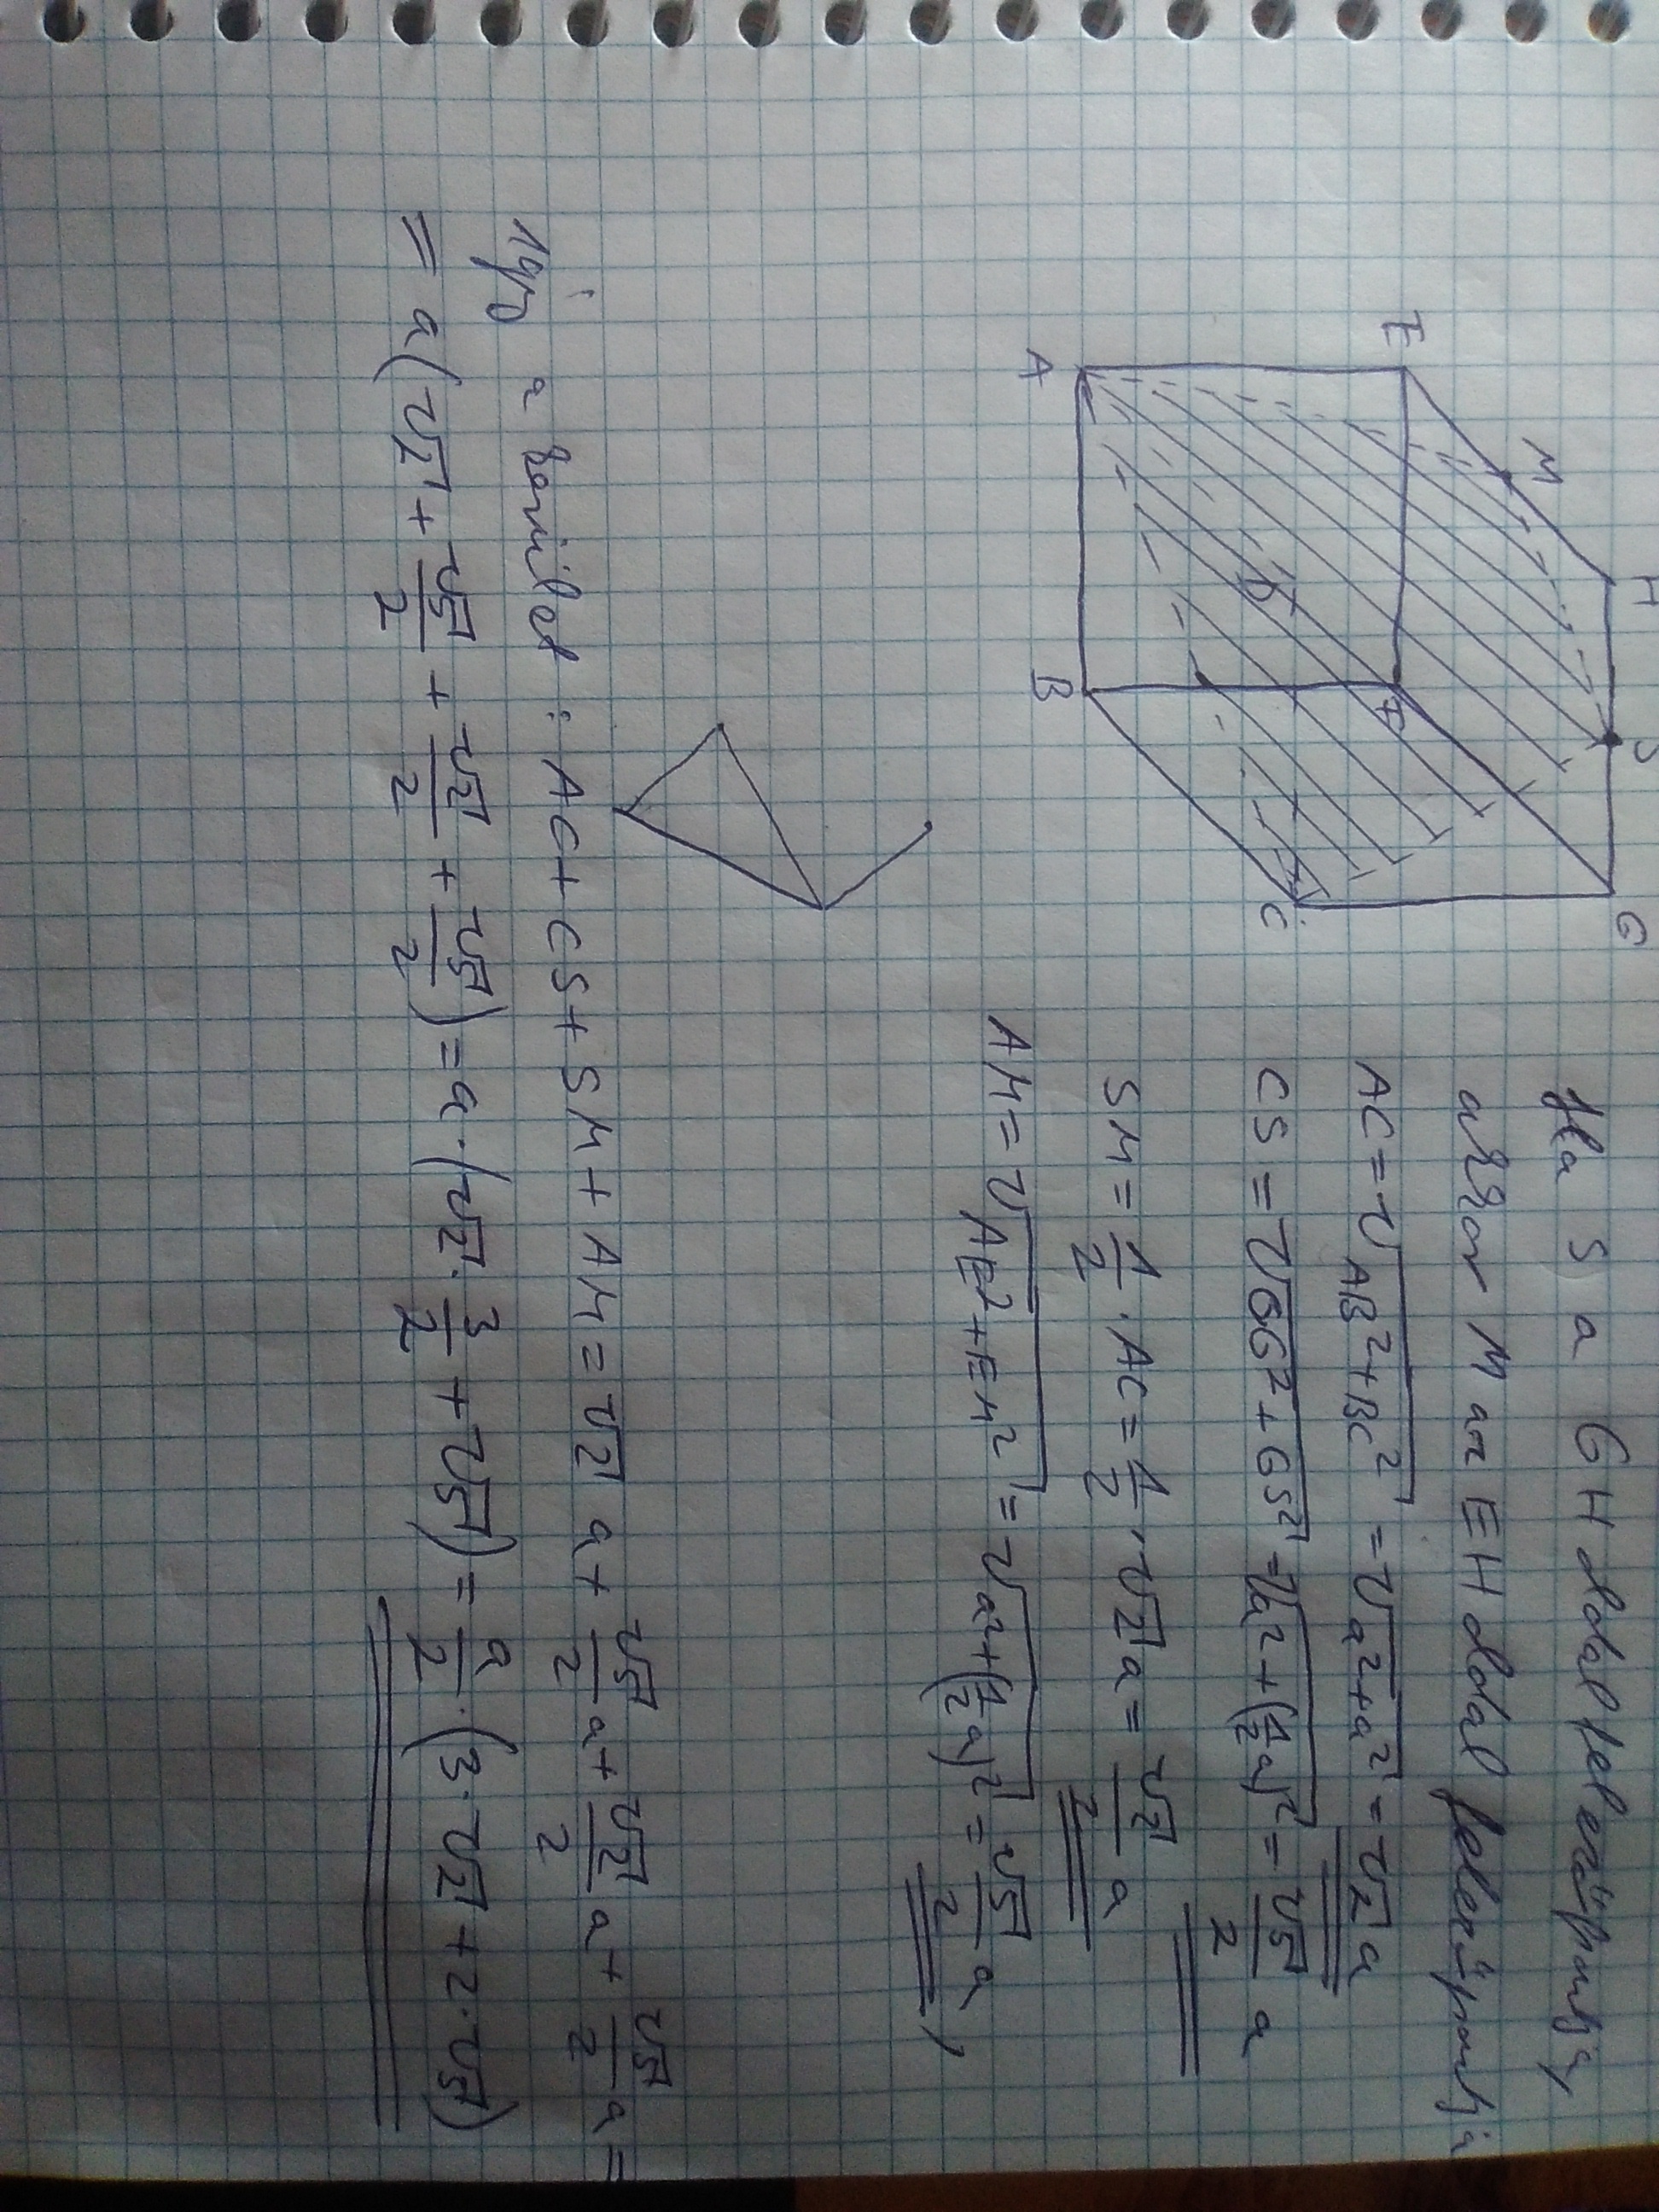 Ha S a GH oldal felezőpontja,
akkor M az EH oldal felezőpontja
AC = √AB² + BC² = √a² + a² = √2 a
CS = √GC² + GS² = √a² + (1/2 a)² = √5/2 a
SM = 1/2 · AC = 1/2 · √2 a = √2/2 a
AM = √AE² + EM² = √a² + (1/2 a)² = √5/2 a,
H
S
G
M
E
F
D
C
A
B
Így a kerület: AC + CS + SM + AM = √2 a + √5/2 a + √2/2 a + √5/2 a =
= a(√2 + √5/2 + √2/2 + √5/2) = a · (√2 · 3/2 + √5) = a/2 · (3 · √2 + 2 · √5)